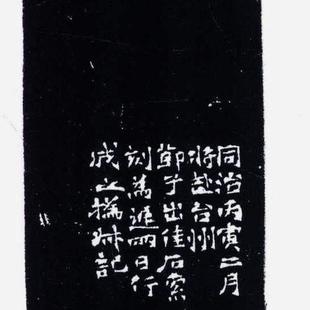 同治丙寅二月
將赴台州
節子出佳石索
刻為遲四日行
成之撝叔記